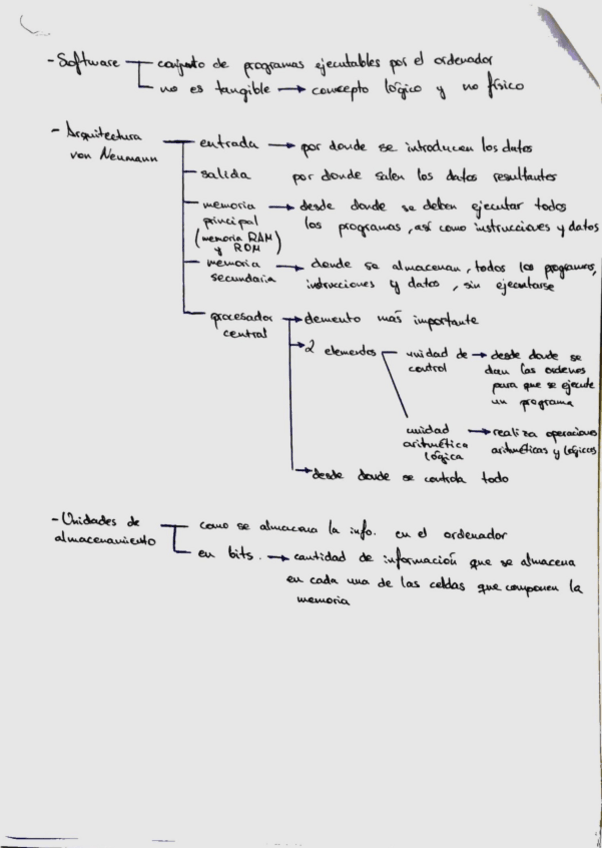 - Software
conjunto de programas ejecutables por el ordenador
no es tangible → concepto lógico y no físico
- Arquitectura
von Neumann
entrada → por donde se introducen los datos
salida por donde salen los datos resultantes
memoria
principal
(memoria RAM
y ROM)
→ desde donde se deben ejecutar todos
los programas, así como instrucciones y datos
memoria
secundaria
→ donde se almacenan, todos los programas,
instrucciones y datos, sin ejecutarse
procesador
central
→ elemento más importante
→ 2 elementos
unidad de
control
→ desde donde se
dan las ordenes
para que se ejecute
un programa
unidad
aritmética
lógica
→ realiza operaciones
aritméticas y lógicas
→ desde donde se controla todo
- Unidades de
almacenamiento
como se almacena la info. en el ordenador
en bits. → cantidad de información que se almacena
en cada una de las celdas que componen la
memoria